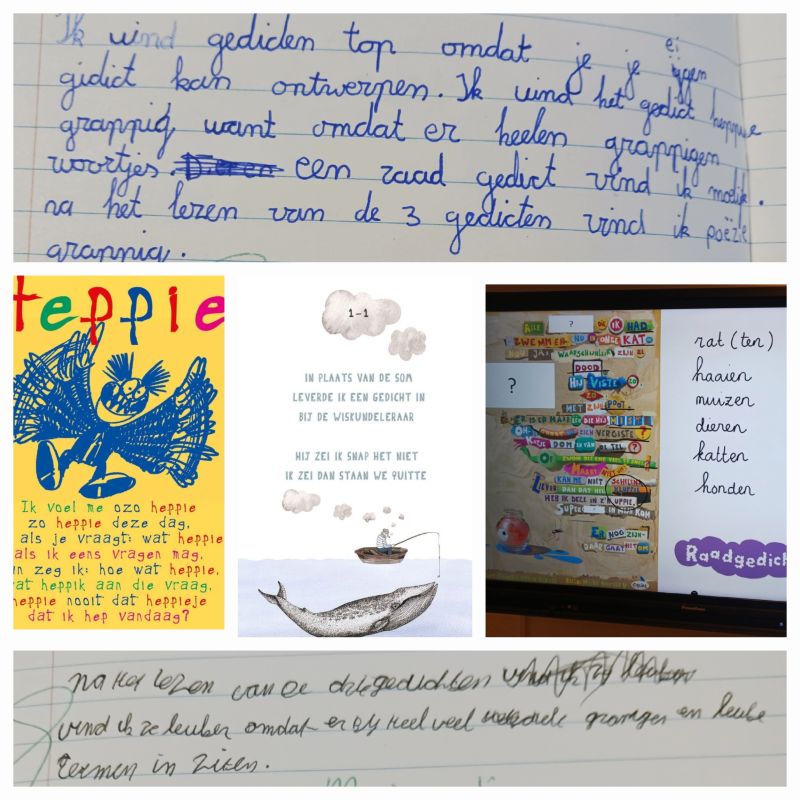 Ik vind gedichten top omdat je je ei
gidict kan ontwerpen. Ik vind het gedict heppie
grappig want omdat er heelen grappigen
woortjes. een raad gedict vind ik moelik.
na het lezen van de 3 gedicten vind ik poëzie
grappig.
teppie
Ik voel me ozo heppie
zo heppie deze dag,
als je vraagt: wat heppie
als ik eens vragen mag,
n zeg ik: hoe wat heppie,
at heppik aan die vraag,
heppie nooit dat heppieje
dat ik hep vandaag?
1-1
IN PLAATS VAN DE SOM
LEVERDE IK EEN GEDICHT IN
BIJ DE WISKUNDELERAAR
HIJ ZEI IK SNAP HET NIET
IK ZEI DAN STAAN WE QUITTE
ALLE ? DIE IK HAD
ZWEMMEN NU IN ONZE KATO
NOU JA, WAARSCHIJNLIJK ZIJN ZE
DOOD
?
HIJ VISTE ZO
ZO
MET ZIJN POOT
ZICH VERGISTE?
KAN ME NIET
LIEVER DAN DAT HELE
HEB IK DEZE IN Z'N
SUPER IN MIJN KOM
ER NOG ZIJN-
DAAR GAAT HET OM
rat (ten)
haaien
muizen
dieren
katten
honden
Raadgedich
na het lezen van de drie gedichten
vind ik ze leuker omdat er bij heel veel grapigen en leuke
termen in zitten.